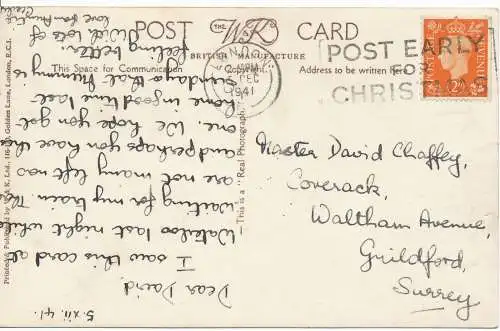 POST THE W&K CARD
BRITISH MANUFACTURE
This Space for Communication Copyright. Address to be written here.
5.xii.41.
Dear David,
I saw this card at
Waterloo last night while
waiting for my train. There
are not many left now
and perhaps you have this
one. We hope you got
home in good time last
Sunday & that Mummy is
feeling better.
With lots of
love from Auntie
POST EARLY
FOR
CHRISTMAS
1941
POSTAGE REVENUE
2D
Master David Chaffey,
Coverack,
Waltham Avenue,
Guildford,
Surrey
This is a "Real Photograph."
Golden Lane, London, E.C.1.